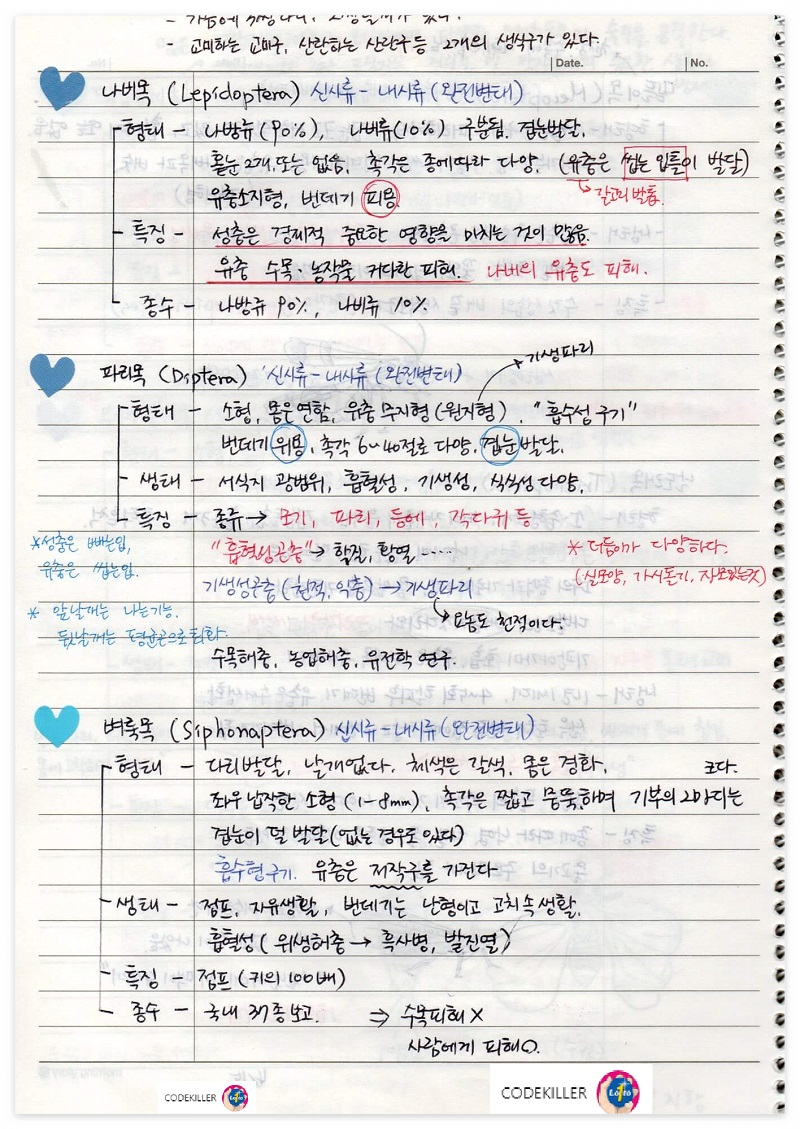 - 고미하는 고미구, 산란하는 산란구등 2개의 생식구가 있다.
Date. No.
나비목 (Lepidoptera) 신시류 - 내시류 (완전변태)
형태 - 나방류(90%), 나비류(10%) 구분됨. 겹눈발달.
홑눈 2개.또는 없음, 촉각은 종에따라 다양. (유충은 씹는 입틀이 발달)
유충소지형, 번데기 피용 갈고리 발톱.
특징 - 성충은 경제적 중요한 영향을 미치는 것이 많음.
유충 수목·농작물 커다란 피해. 나비의 유충도 피해.
종수 - 나방류 90%, 나비류 10%
기생파리
파리목 (Diptera) 신시류 - 내시류 (완전변태)
형태 - 소형, 몸은연함, 유충 무지형 (원지형). "흡수성 구기"
번데기 위용, 촉각 6~40절로 다양. 겹눈발달.
생태 - 서식지 광범위, 흡혈성, 기생성, 식식성 다양.
특징 - 종류 → 모기, 파리, 등에, 각다귀 등
*성충은 빠는입, "흡혈성곤충" → 황열 ..... * 더듬이가 다양하다.
유충은 씹는입. 기생성곤충 (천적, 익충) → 기생파리 (실모양, 가시돋기,
* 앞날개는 나는기능. 요놈도 천적이다.
뒷날개는 평균곤으로 퇴화.
수목해충, 농업해충, 유전학 연구.
벼룩목 (Siphonaptera) 신시류 - 내시류 (완전변태)
형태 - 다리발달, 날개없다. 체색은 갈색. 몸은 경화. 크다.
좌우 납작한 소형 (1-8mm), 촉각은 짧고 뭉뚝하며 기부의 2마디는
겹눈이 덜 발달 (없는 경우도 있다)
흡수형구기. 유충은 저작구를 가진다.
생태 - 점프, 자유생활, 번데기는 난형이고 고치속 생활.
흡혈성 (위생해충 → 흑사병, 발진열)
특징 - 점프 (키의 100배)
종수 - 국내 37종 보고. ⇒ 수목피해 X
사람에게 피해O.
CODEKILLER Lotto CODEKILLER Lotto